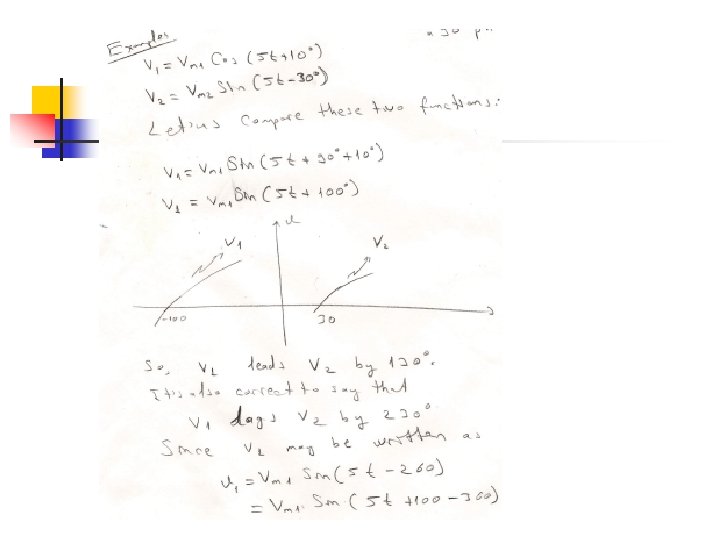 Examples
V1 = Vm1 Cos (5t+10°)
V2 = Vm2 Sin (5t-30°)
Let us compare these two functions:
V1 = Vm1 Sin (5t + 90° + 10°)
V1 = Vm1 Sin (5t + 100°)
V1
V2
-100
30
So, V1 leads V2 by 130°.
It is also correct to say that
V1 lags V2 by 230°
Since V1 may be written as
V1 = Vm1 Sin (5t - 260)
= Vm1 Sin (5t +100 - 360)